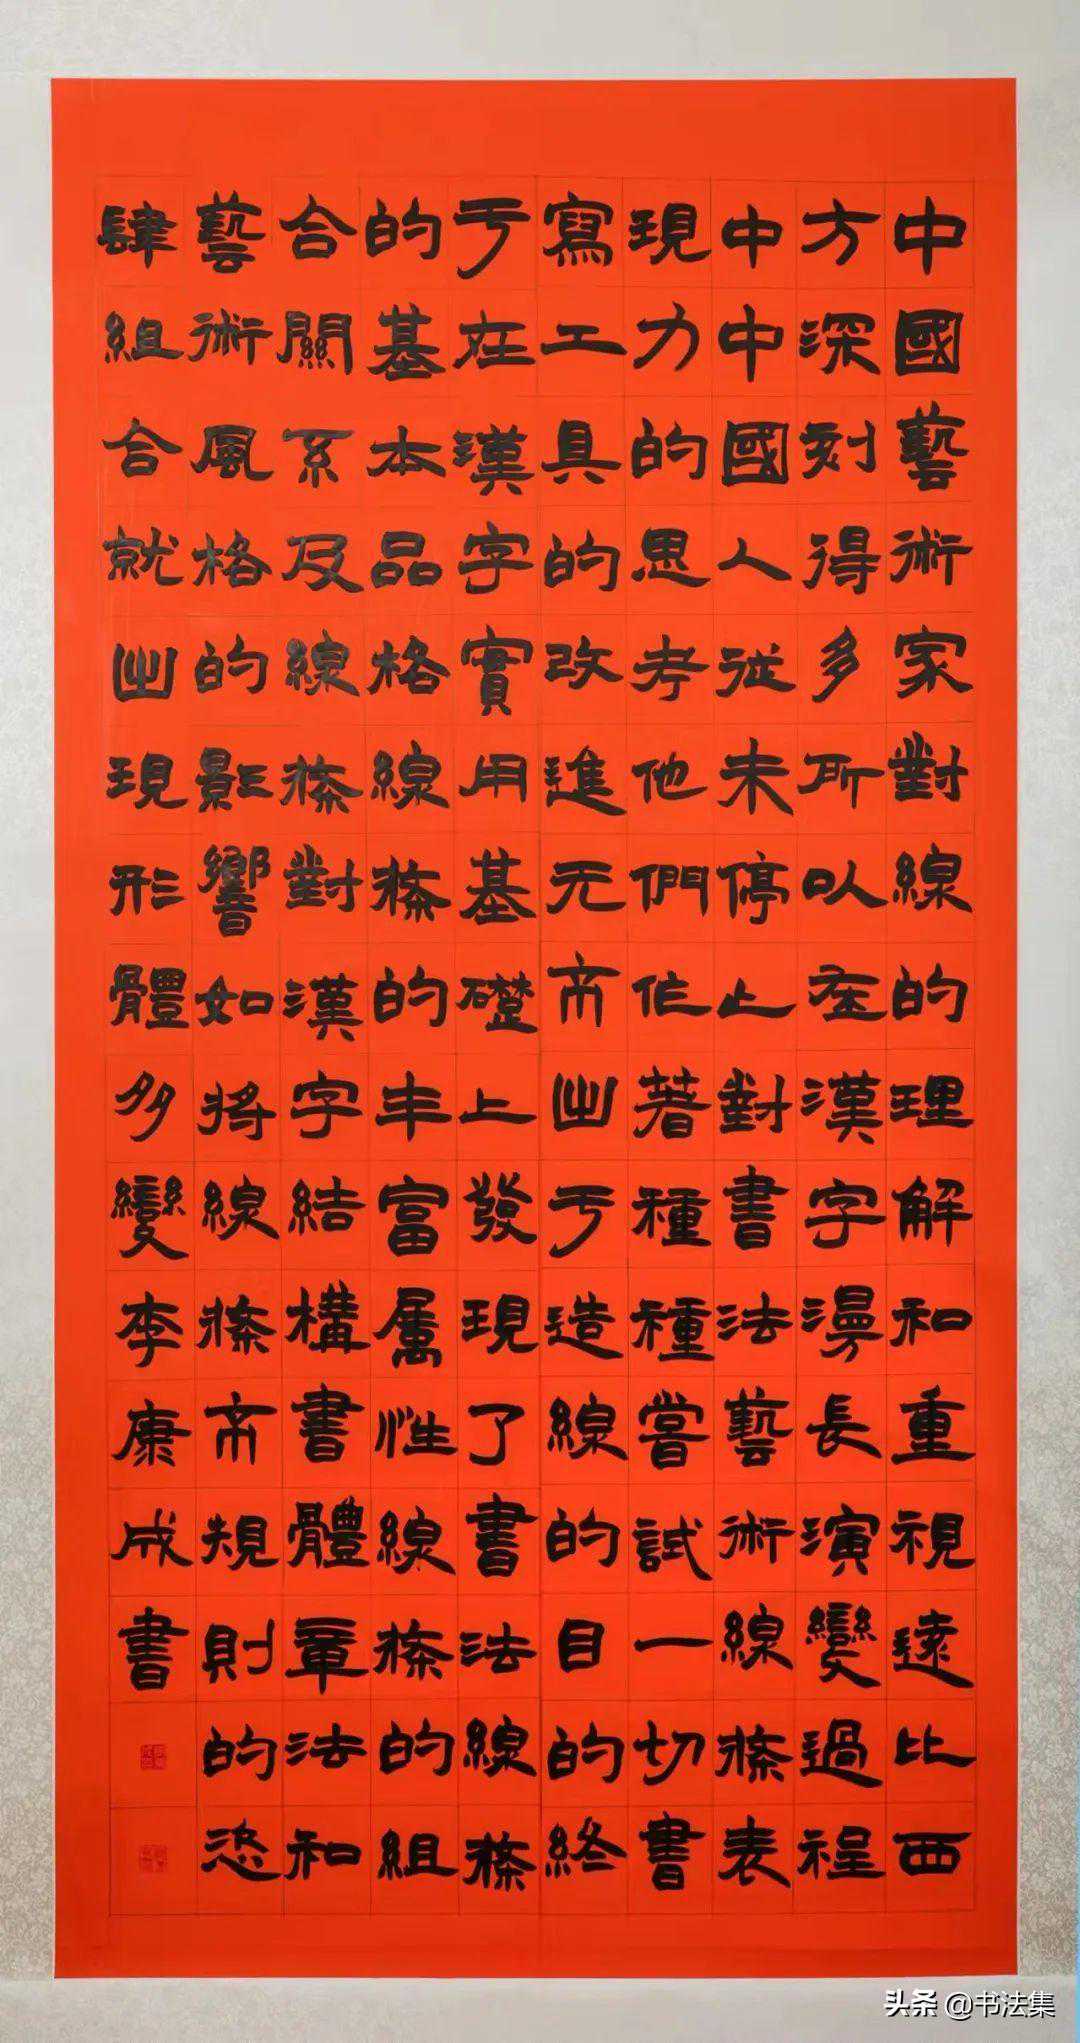 中國藝術家對線的理解和重視遠比西
方深刻得多所以在漢字漫長演變過程
中中國人從未停止對書法藝術線條表
現力的思考他們作著種種嘗試一切書
寫工具的改進无不出于造線的目的終
于在漢字實用基礎上發現了書法線條
的基本品格線條的丰富屬性線條的組
合關系及線條對漢字結構書體章法和
藝術風格的影響如將線條不規則的恣
肆組合就出現形體多變李康成書
头条 @书法集